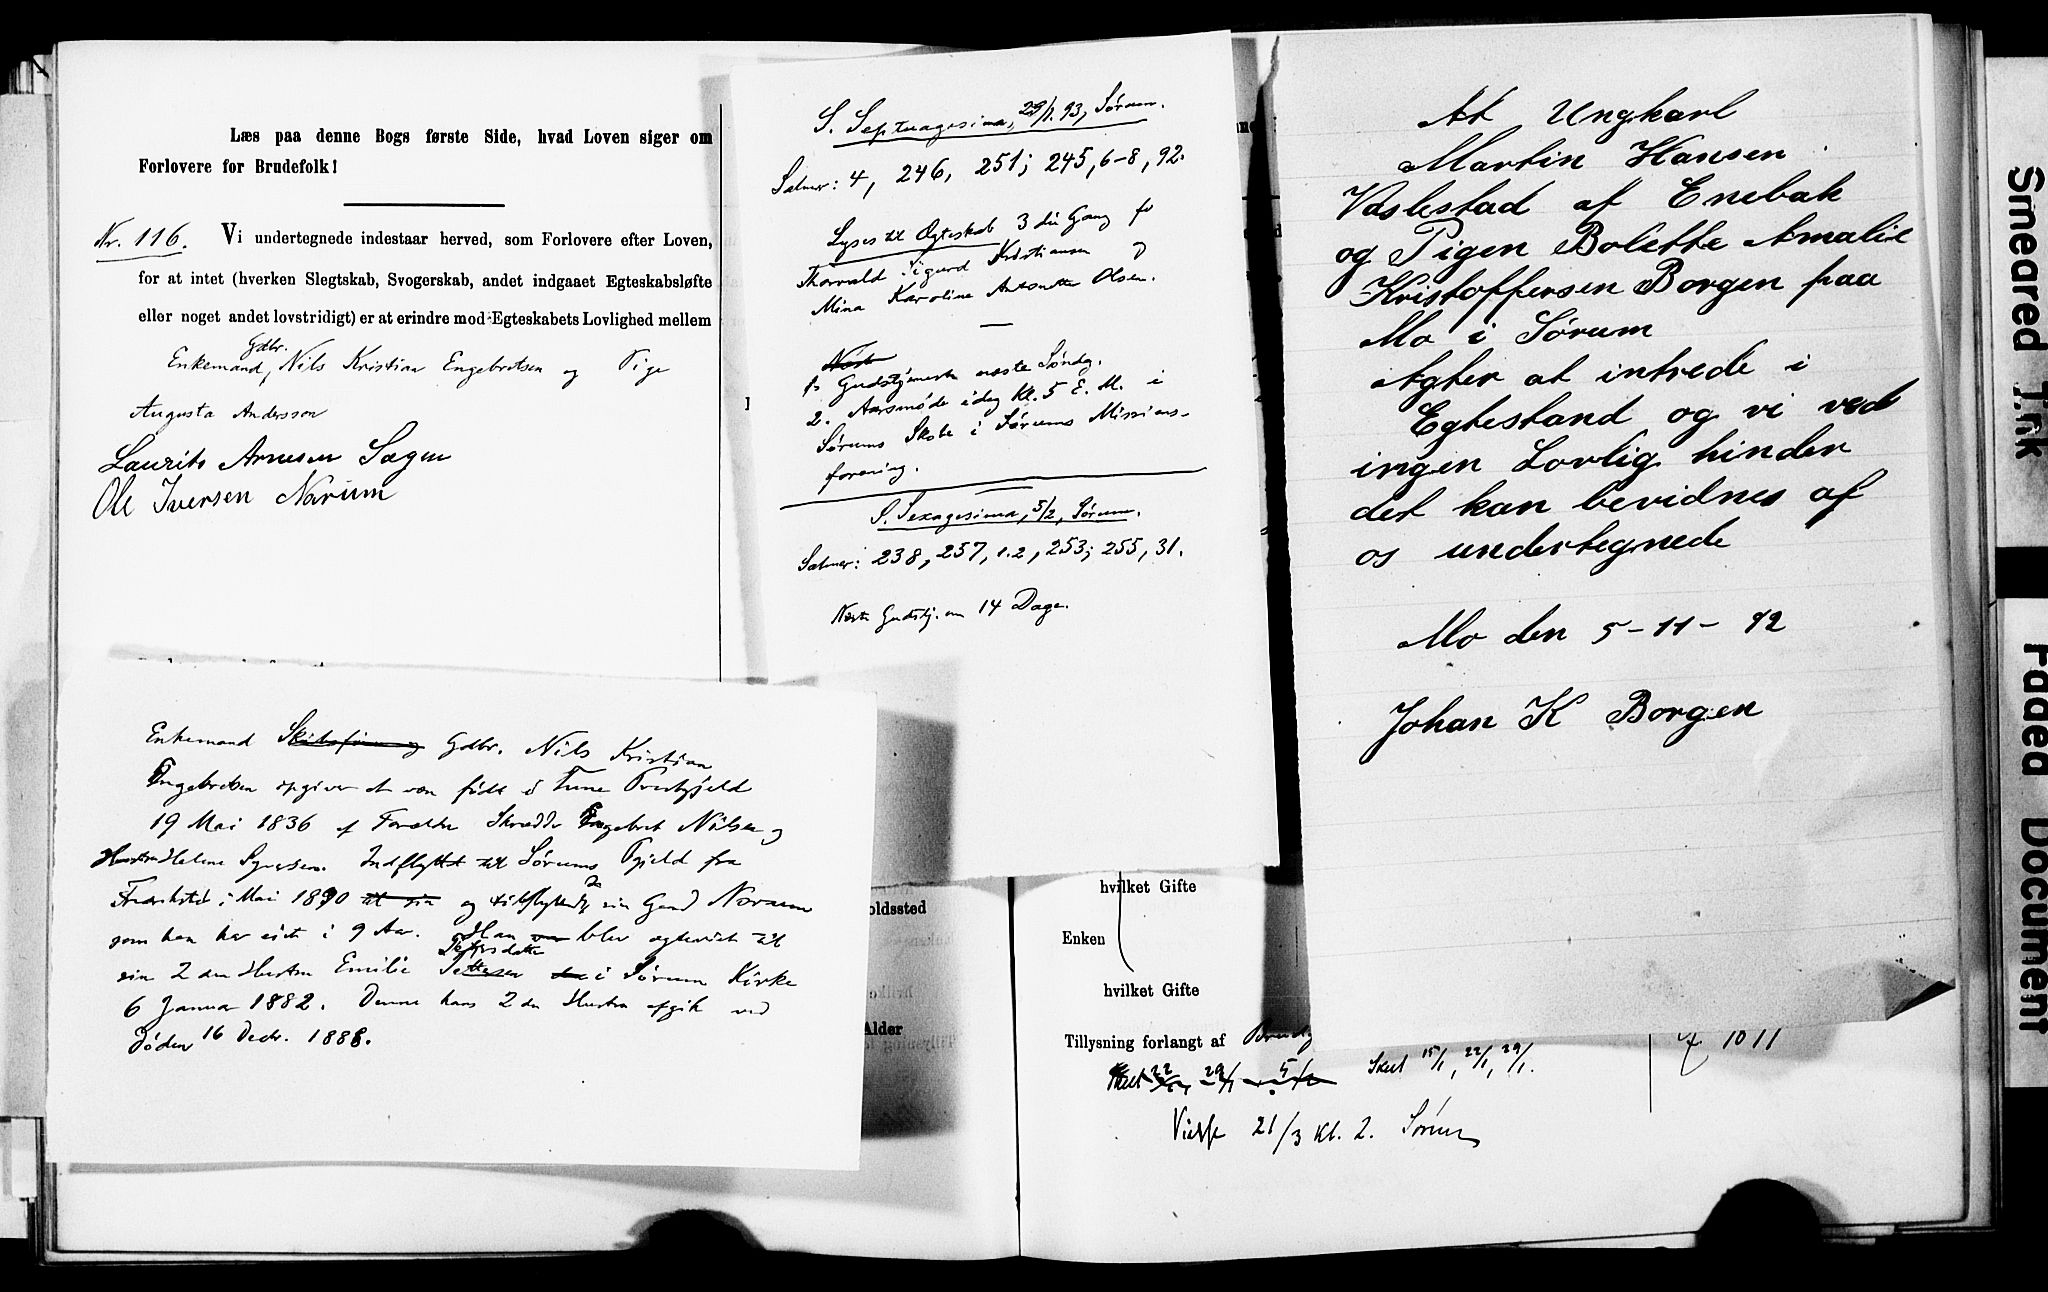 Læs paa denne Bogs første Side, hvad Loven siger om
Forlovere for Brudefolk!
Nr. 116. Vi undertegnede indestaar herved, som Forlovere efter Loven,
for at intet (hverken Slegtskab, Svogerskab, andet indgaaet Egteskabsløfte
eller noget andet lovstridigt) er at erindre mod Egteskabets Lovlighed mellem
Gdbr.
Enkemand, Nils Kristian Engebretsen og Pige
Augusta Andersson
Laurits Arnesen Sagen
Ole Iversen Nørum
Enkemand Gdbr. Nils Kristian
Engebretsen opgiver at være født i Tune Prestgjeld
19 Mai 1836 af Forældre Skrædder Engebret Nilsen og
Hustru Helene Syversen. Indflyttet til Sørums Pgjeld fra
i Mai 1890 og sin Gaard
som han har eiet i 9 Aar. Han blev ægteviet til
Petersdatter
sin 2den Hustru Emilie i Sørum Kirke
6 Januar 1882. Denne hans 2den Hustru afgik ved
Døden 16 Decbr. 1888.
S. Septuagesima, 29/1. 93, Sørum.
Salmer: 4, 246, 251; 245, 6-8, 92.
Lyses til Ægteskab 3die Gang for
Thorvald Sigurd Kristiansen og
Mina Karoline Antonette Olsen.
1. Gudstjeneste næste Søndag.
2. Aarsmøde idag kl. 5 E. M. i
Sørums Skole i Sørums Missions-
forening.
S. Sexagesima, 5/2, Sørum.
Salmer: 238, 257, 1.2, 253; 255, 31.
Næste Gudstj. om 14 Dage.
At Ungkarl
Martin Hansen
Vaslestad af Enebak
og Pigen Bolette Amalie
Kristoffersen Borgen paa
Mo i Sørum
Agter at intrede i
Egtestand og vi ved
ingen Lovlig hinder
det kan bevidnes af
os undertegnede
Mo den 5-11-92
Johan K Borgen
oldssted
Alder
hvilket Gifte
Enken
hvilket Gifte
Tillysning forlangt af
22 29/1 5/2 Skeet 15/1, 22/1, 29/1.
10 11
Vielse 21/3 Kl. 2. Sørum
Smeared Ink
Faded Document